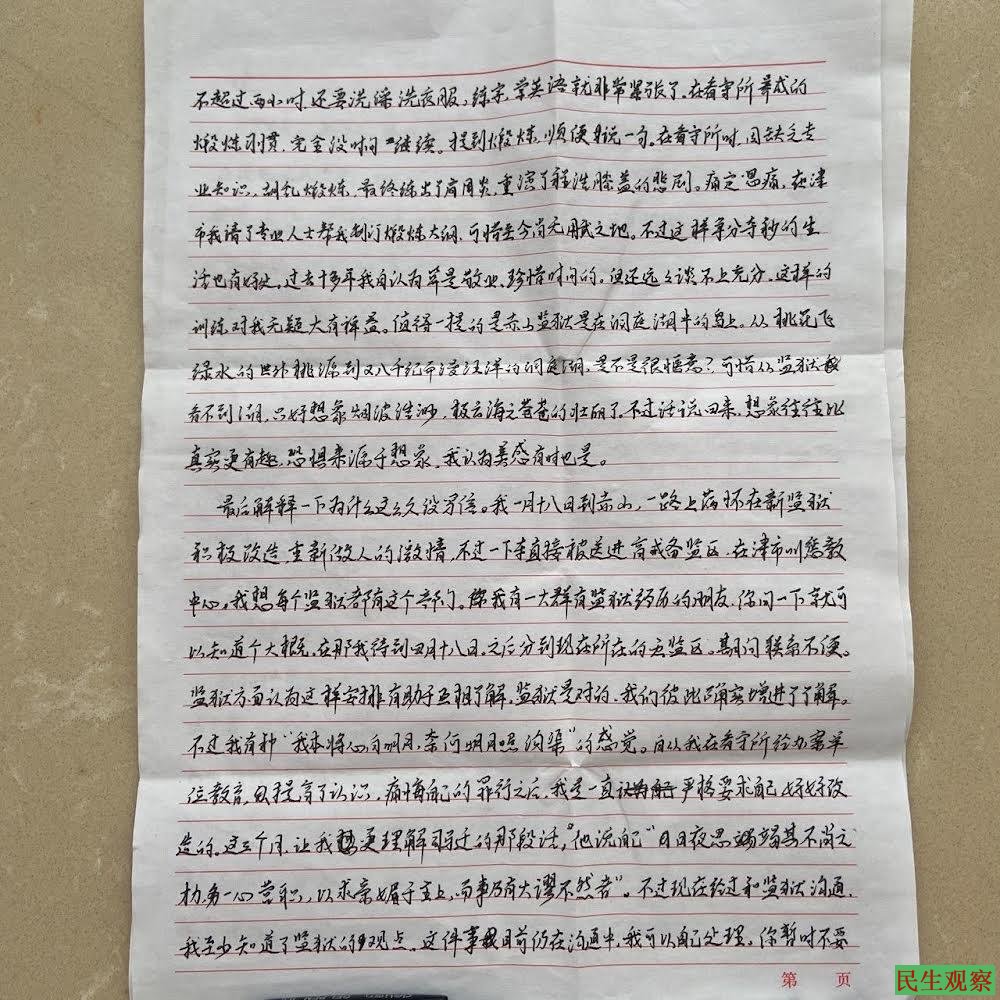 不超过两小时,还要洗澡洗衣服,练字,学英语就非常紧张了。在看守所养成的
煅炼习惯,完全没时间继续。提到煅炼,顺便说一句。在看守所时,因缺乏专
业知识,胡乱煅炼,最终练出了肩周炎,重演了程浩膝盖的悲剧。痛定思痛,在津
市我请了专业人士帮我制订煅炼大纲,可惜至今尚无用武之地。不过这样争分夺秒的生
活也有好处。过去十多年我自认为算是敬业、珍惜时间的,但还远远谈不上充分,这样的
训练对我无疑大有裨益。值得一提的是赤山监狱是在洞庭湖中的岛上。从桃花飞
绿水的世外桃源到又八千纪而漫汪洋的洞庭湖,是不是很惬意?可惜从监狱
看不到湖,只好想象烟波浩渺,极云海之苍苍的壮丽了。不过话说回来,想象往往比
真实更有趣,恐惧来源于想象,我认为美感有时也是。
最后解释一下为什么这么久没写信。我一月十八日到赤山,一路上满怀在新监狱
积极改造,重新做人的激情,不过一下车直接被送进高戒备监区,在津市叫惩教
中心,我想每个监狱都有这个部门。你我有一大群有监狱经历的朋友,你问一下就可
以知道个大概。在那我待到四月十八日。之后分到现在所在的五监区。期间联系不便。
监狱方面认为这样安排有助于互相了解,监狱是对的,我们彼此确实增进了了解。
不过我有种“我本将心向明月,奈何明月照沟渠”的感觉。自从我在看守所经办案单
位教育,提高了认识,痛悔自己的罪行之后,我是一直严格要求自己好好改
造的。这三个月,让我更理解司马迁的那段话,他说自己“日日夜思竭其不肖之
材力,务一心营职,以求亲媚于主上,而事乃有大谬不然者”。不过现在经过和监狱沟通,
我至少知道了监狱的观点,这件事目前仍在沟通中,我可以自己处理,你暂时不要
第 页
民生观察